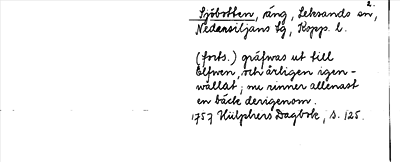 2.
Sjöbotten, äng, Leksands sn,
Nedansiljans fg, Kopp. l.
(forts.) gräfwas ut till
Elfwen, och årligen igen-
wållat; nu rinner allenast
en bäck derigenom.
1757 Hülphers Dagbok, s. 125.